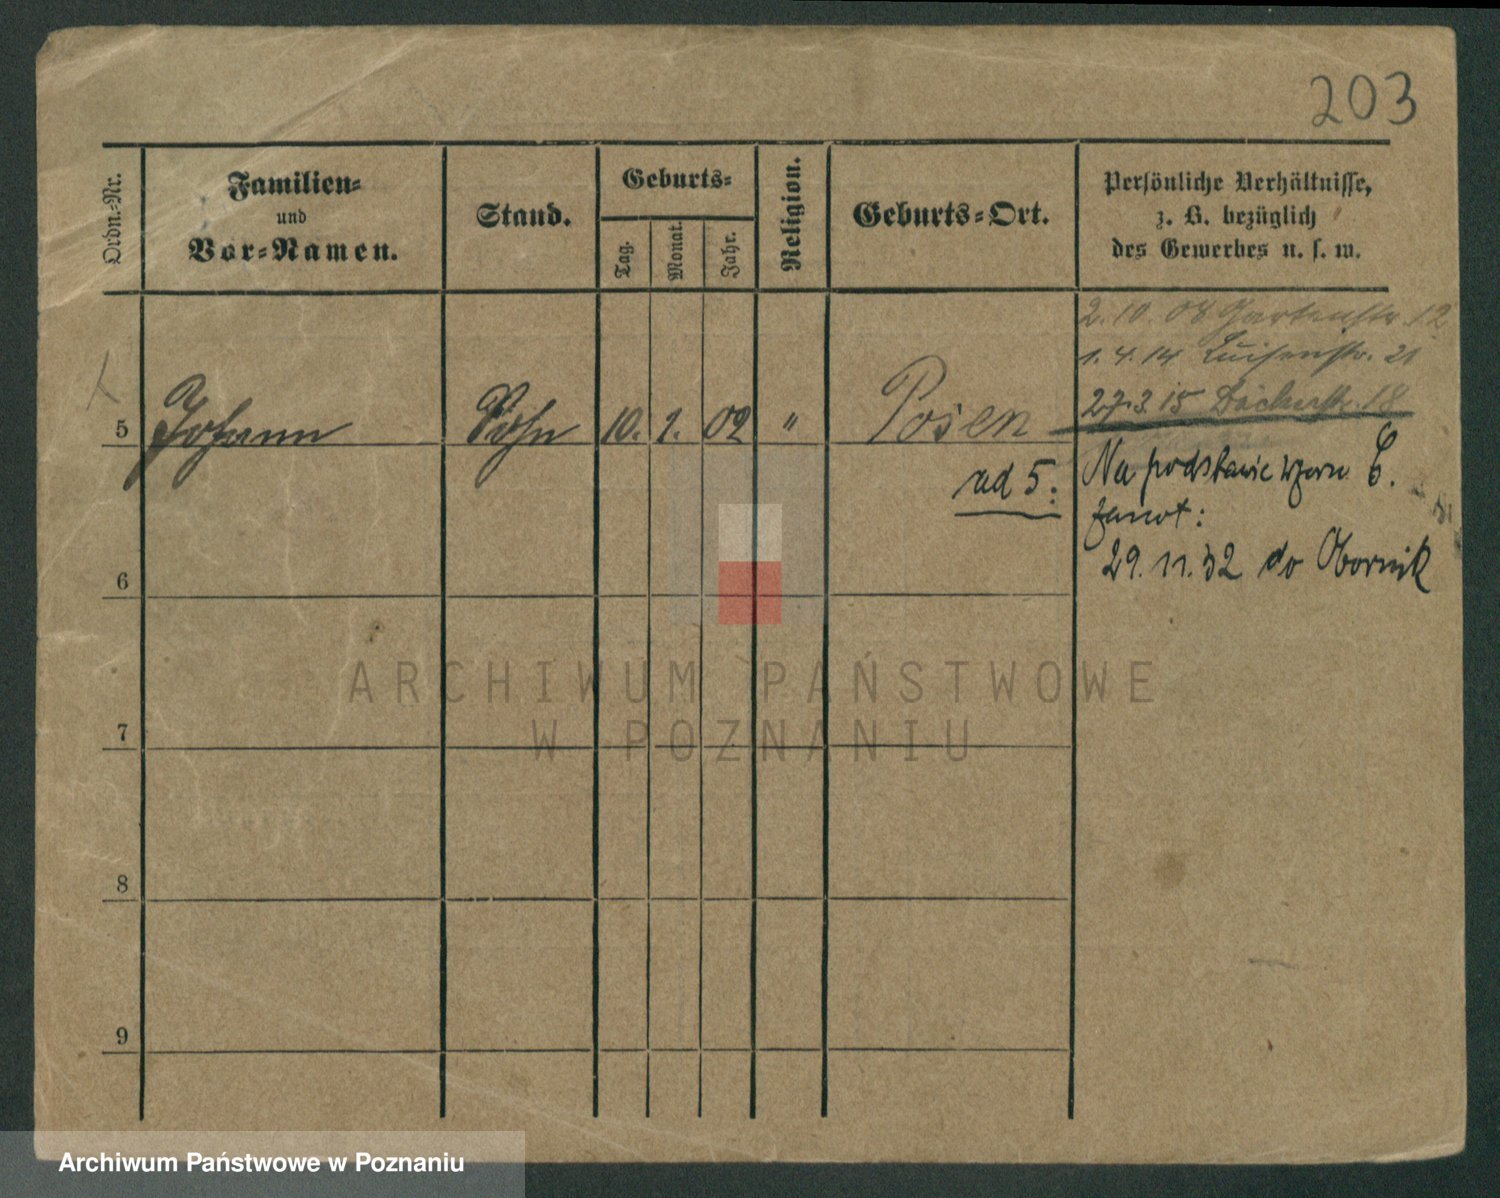 203
Ordn.-Nr.
Familien-
und
Vor-Namen.
Stand.
Geburts-
Tag.
Monat.
Jahr.
Religion.
Geburts-Ort.
Persönliche Verhältnisse,
z. B. bezüglich
des Gewerbes u. s. w.
2.10.08 Gartenstr. 12
1.4.14 Luisenstr. 21
27.3.15 Bäckerstr. 18
5 Johann Sohn 10. 1. 02 " Posen
ad 5: Na podstawie wzoru C.
zanot:
29.11.32 do Obornik
6
7
8
9
ARCHIWUM PAŃSTWOWE
W POZNANIU
Archiwum Państwowe w Poznaniu